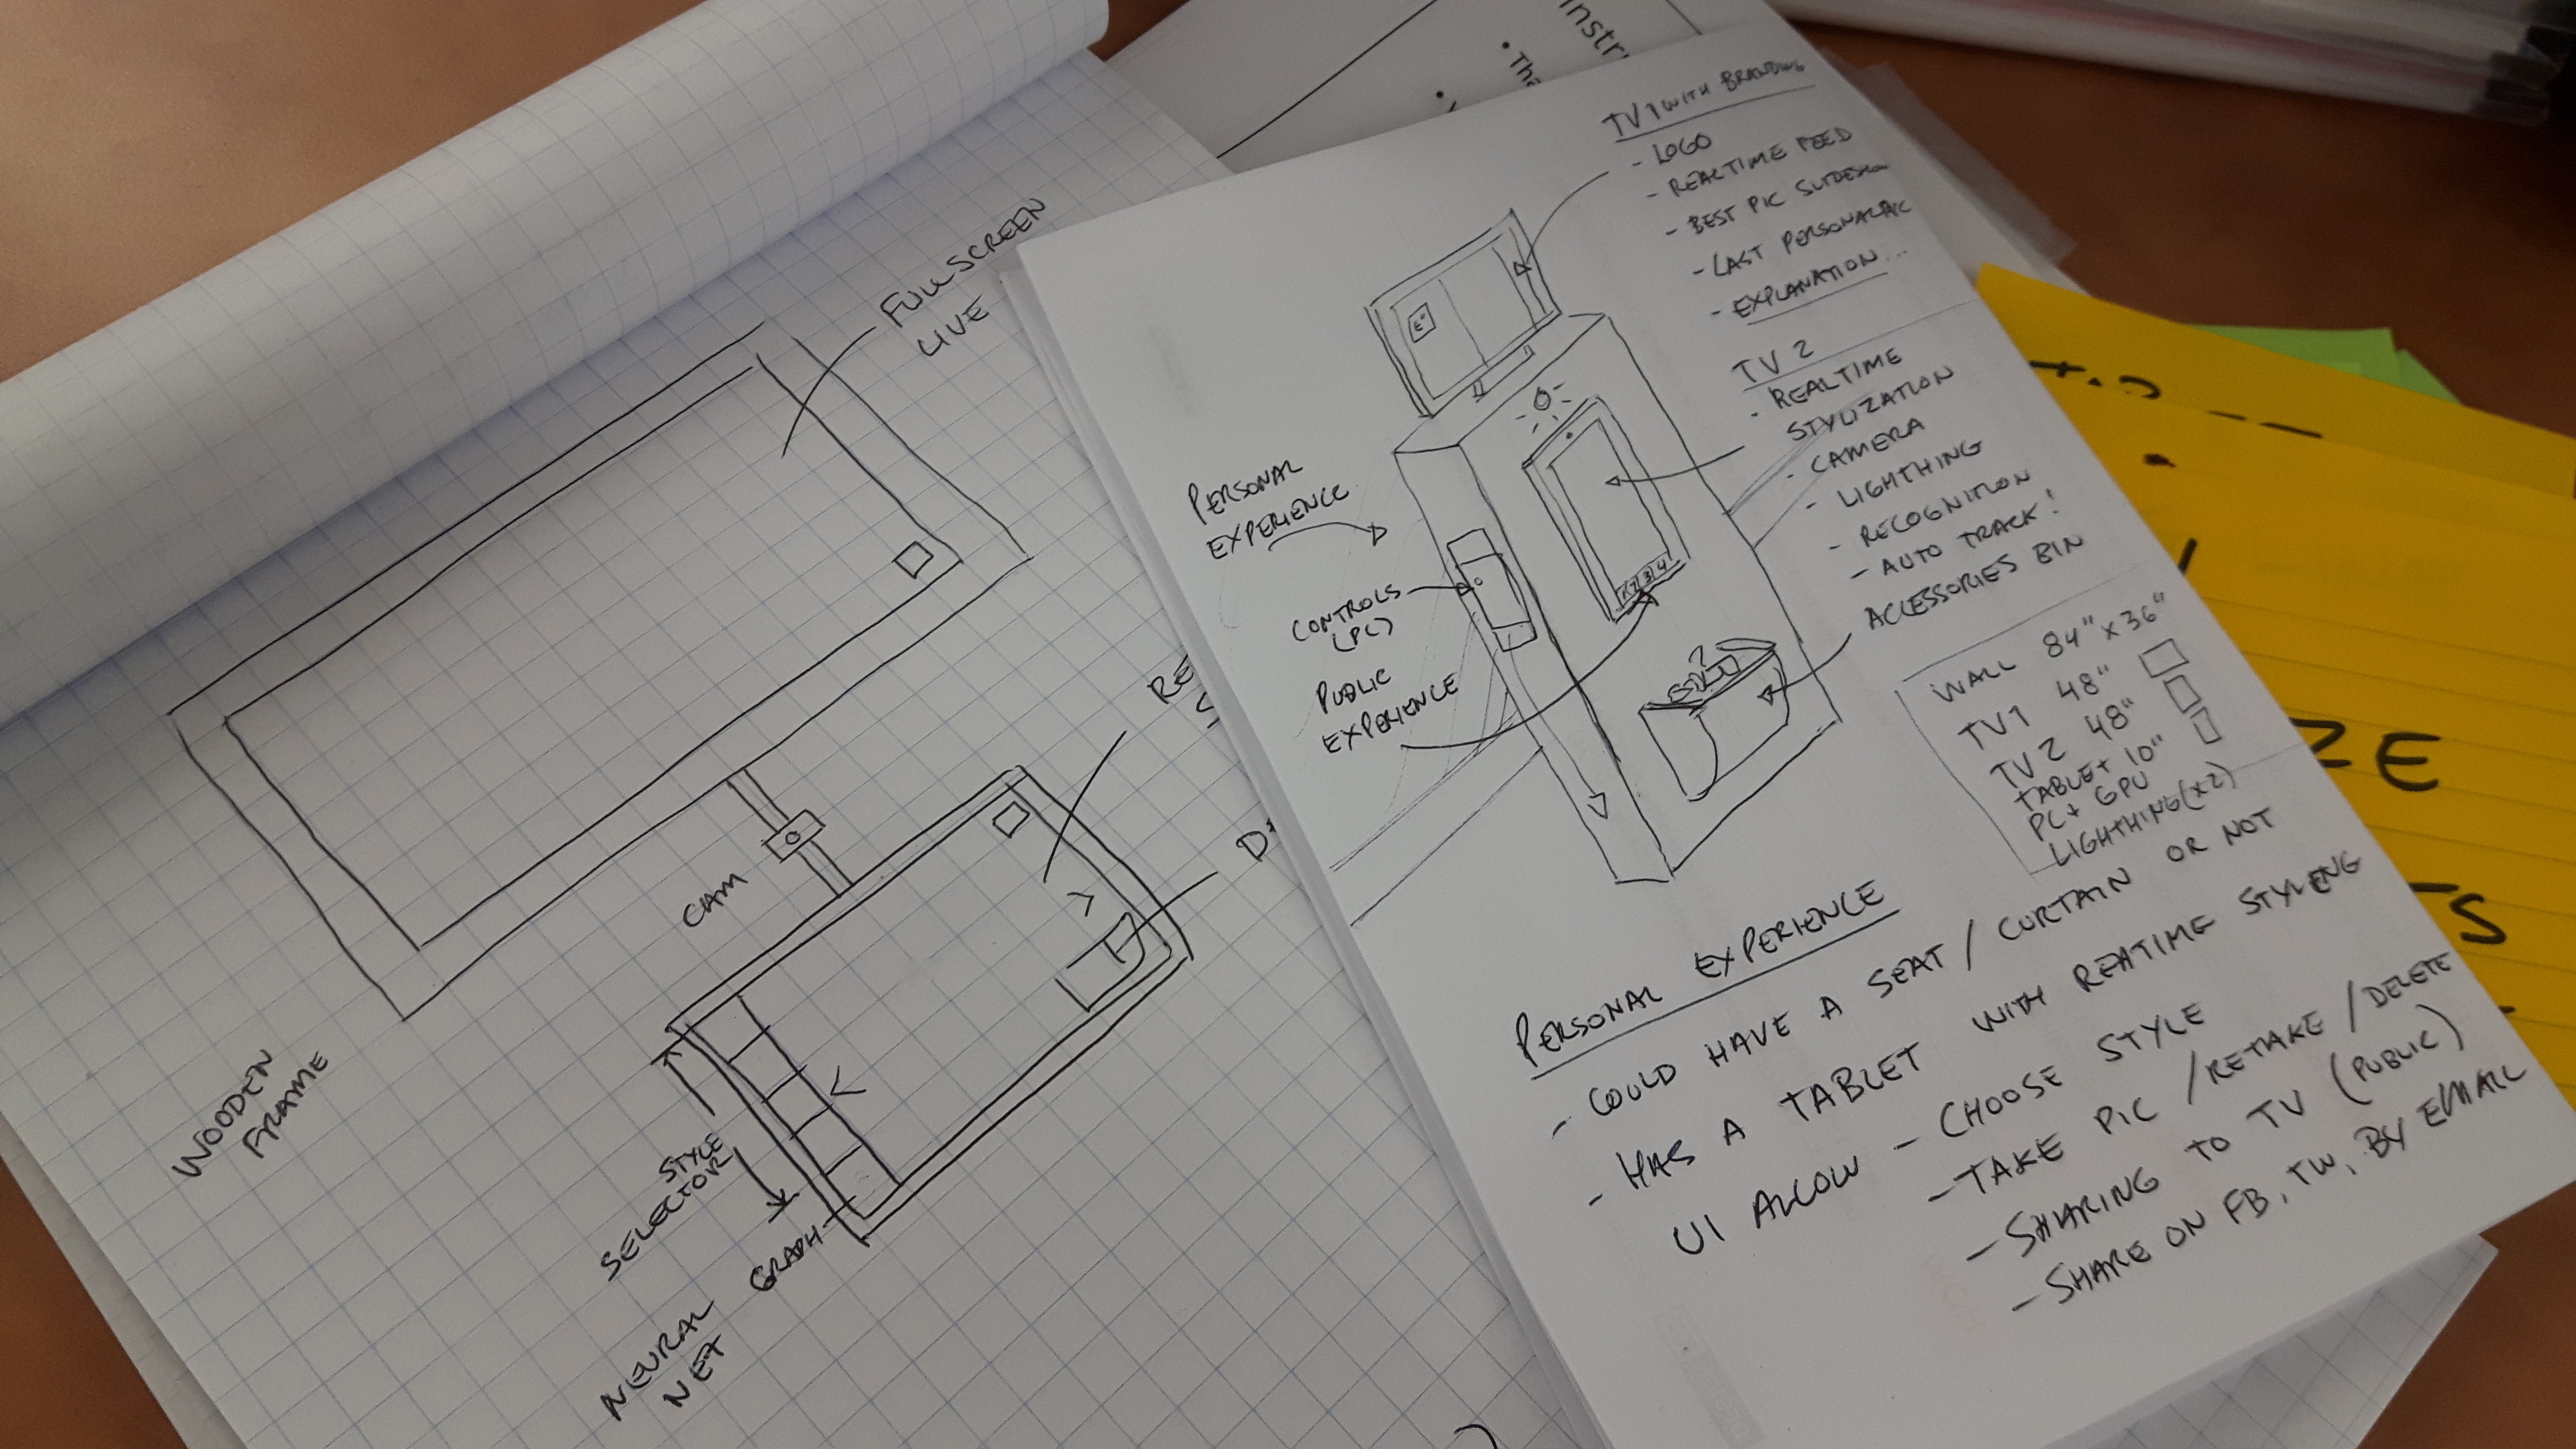 FULLSCREEN
LIVE
CAM
WOODEN
FRAME
STYLE
SELECTOR
NEURAL
NET GRAPH
Instr
• Th
TV1 WITH BRANDING
- LOGO
- REALTIME FEED
- BEST PIC
- LAST PERSONAL PIC
- EXPLANATION...
TV 2
- REALTIME
STYLIZATION
- CAMERA
- LIGHTHING
- RECOGNITION
- AUTO TRACK!
ACCESSORIES BIN
PERSONAL
EXPERIENCE
CONTROLS
(PC)
PUBLIC
EXPERIENCE
1 2 3 4
WALL 84" x 36"
TV1 48"
TV2 48"
TABLET 10"
PC + GPU
LIGHTHING (x2)
PERSONAL EXPERIENCE
- COULD HAVE A SEAT / CURTAIN OR NOT
- HAS A TABLET WITH REATIME STYLING
UI ALLOW - CHOOSE STYLE
- TAKE PIC / RETAKE / DELETE
- SHARING TO TV (PUBLIC)
- SHARE ON FB, TW, BY EMAIL
ZE